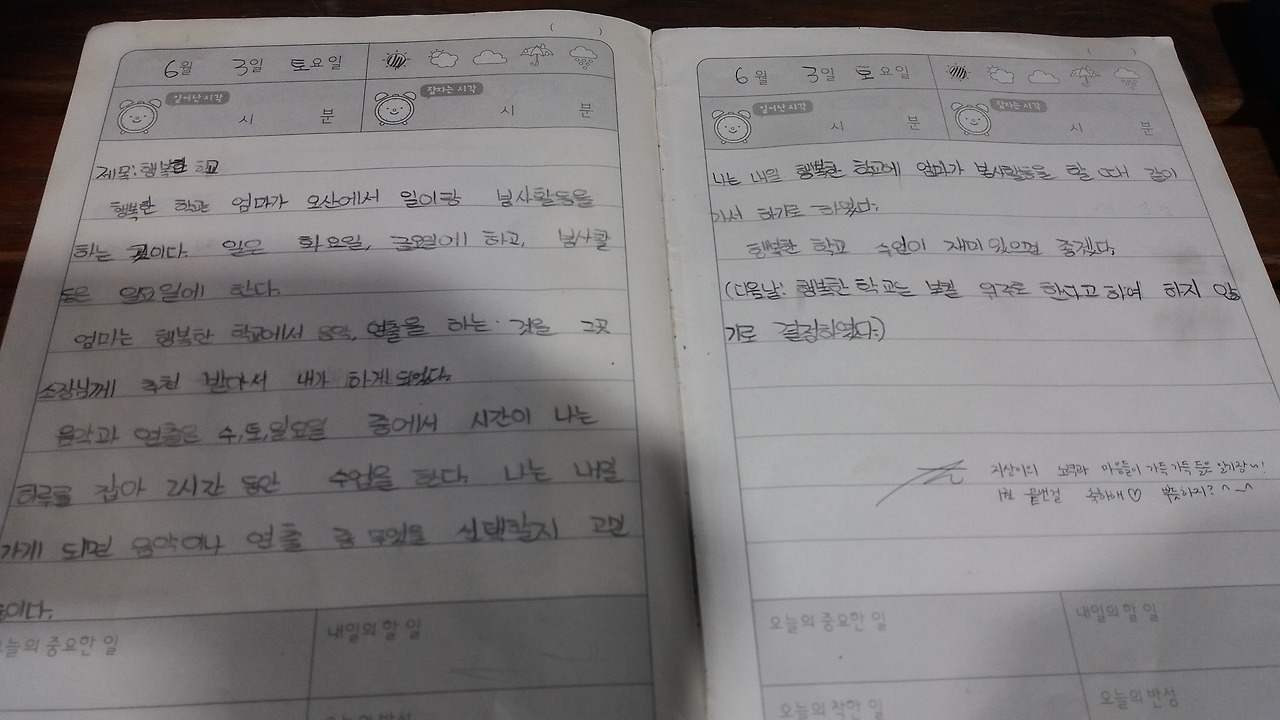 6월 3일 토요일
일어난 시각 시 분
잠자는 시각 시 분
제목:행복한 학교
행복한 학교는 엄마가 오산에서 일이랑 봉사활동을
하는 곳이다. 일은 화요일, 금요일에 하고, 봉사활
동은 일요일에 한다.
엄마는 행복한 학교에서 음악, 연출을 하는 것을 그곳
소장님께 추천 받아서 내가 하게 되었다.
음악과 연출은 수,토,일요일 중에서 시간이 나는
하루를 잡아 2시간 동안 수업을 한다. 나는 내일
가게 되면 음악이나 연출 중 무엇을 선택할지 고민
이다.
오늘의 중요한 일
내일의 할 일
오늘의 반성
6월 3일 토요일
일어난 시각 시 분
잠자는 시각 시 분
나는 내일 행복한 학교에 엄마가 봉사활동을 할 때 같이
가서 하기로 하였다.
행복한 학교 수업이 재미있으면 좋겠다.
(다음날: 행복한 학교는 보컬 위주로 한다고 하여 하지 않
기로 결정하였다.)
지산이의 노력과 마음들이 가득 가득 듬은 일기장~!
1권 끝낸걸 축하해♡ 뿌듯하지? ^~^
오늘의 중요한 일
내일의 할 일
오늘의 착한 일
오늘의 반성